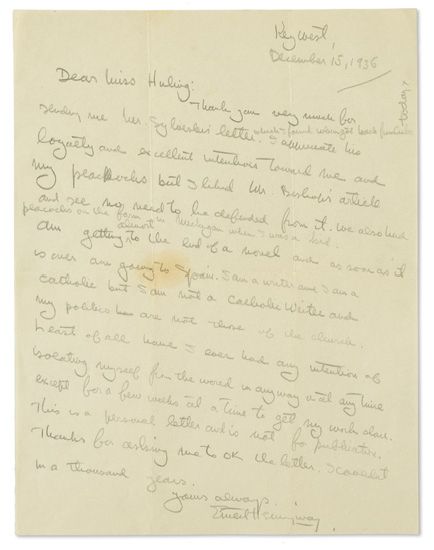 Key West,
December 15, 1936
Dear Miss Huling:
Thank you very much for
sending me Mr. Sylvester's letter which I found when I got back from
today.
I appreciate his
loyalty and excellent intentions toward me and
my peacocks but I liked Mr. Bishop's article
and see no need to be defended from it. We also had
peacocks on the farm in Michigan when I was a kid.
am getting almost to the end of a novel and as soon as it
is over am going to Spain. I am a writer and I am a
Catholic but I am not a Catholic Writer and
my politics are not those of the church.
Least of all have I ever had any intention of
isolating myself from the world in any way or at any time
except for a few weeks at a time to get my work done.
This is a personal letter and is not for publication.
Thanks for asking me to OK the letter. I couldn't
in a thousand years.
Yours always.
Ernest Hemingway.